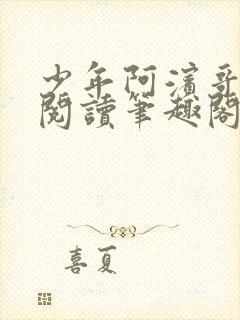 少年阿濱哥
閱讀筆趣閣
喜夏